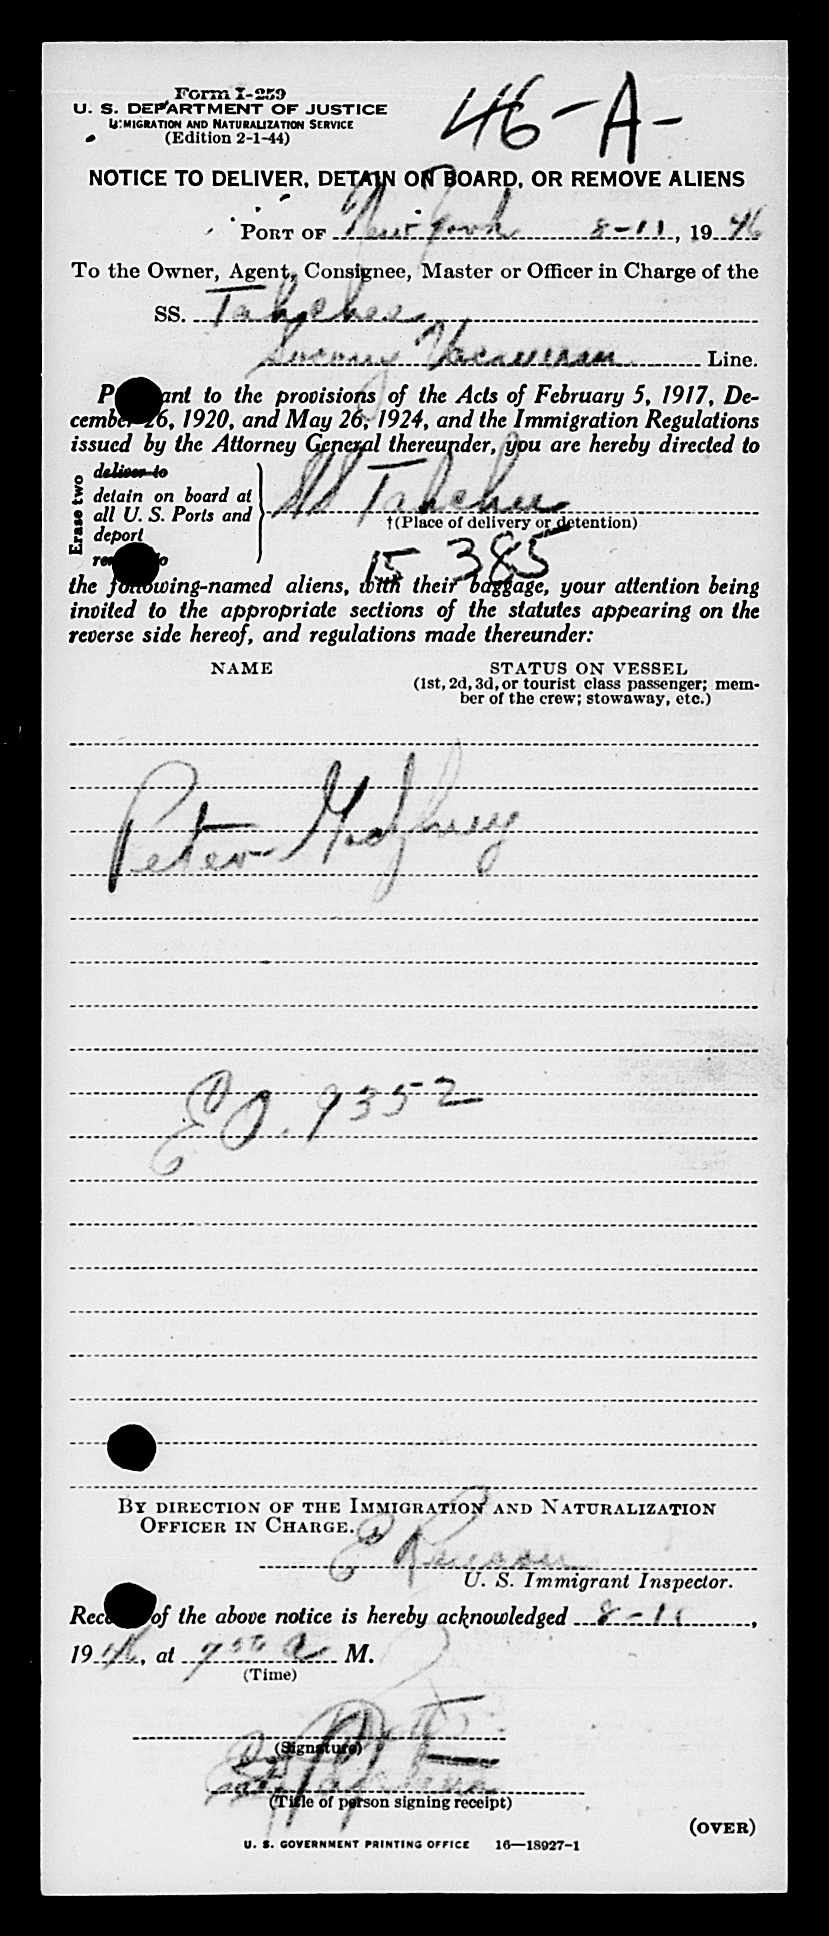 Form I-259
U. S. DEPARTMENT OF JUSTICE
IMMIGRATION AND NATURALIZATION SERVICE
(Edition 2-1-44)
46-A-
NOTICE TO DELIVER, DETAIN ON BOARD, OR REMOVE ALIENS
PORT OF New York 8-11, 1946
To the Owner, Agent, Consignee, Master or Officer in Charge of the
SS. Tahchee
Socony Vacuum Line.
P ant to the provisions of the Acts of February 5, 1917, De-
cember 26, 1920, and May 26, 1924, and the Immigration Regulations
issued by the Attorney General thereunder, you are hereby directed to
Erase two
deliver to
detain on board at
all U. S. Ports and
deport
SS Tahchee
†(Place of delivery or detention)
15 385
the following-named aliens, with their baggage, your attention being
invited to the appropriate sections of the statutes appearing on the
reverse side hereof, and regulations made thereunder:
NAME STATUS ON VESSEL
(1st, 2d, 3d, or tourist class passenger; mem-
ber of the crew; stowaway, etc.)
Peter
EO. 9352
BY DIRECTION OF THE IMMIGRATION AND NATURALIZATION
OFFICER IN CHARGE.
E
U. S. Immigrant Inspector.
Rece of the above notice is hereby acknowledged 8-11,
1946, at 750 a M.
(Time)
(Signature)
(Title of person signing receipt)
(OVER)
U. S. GOVERNMENT PRINTING OFFICE 16—18927-1